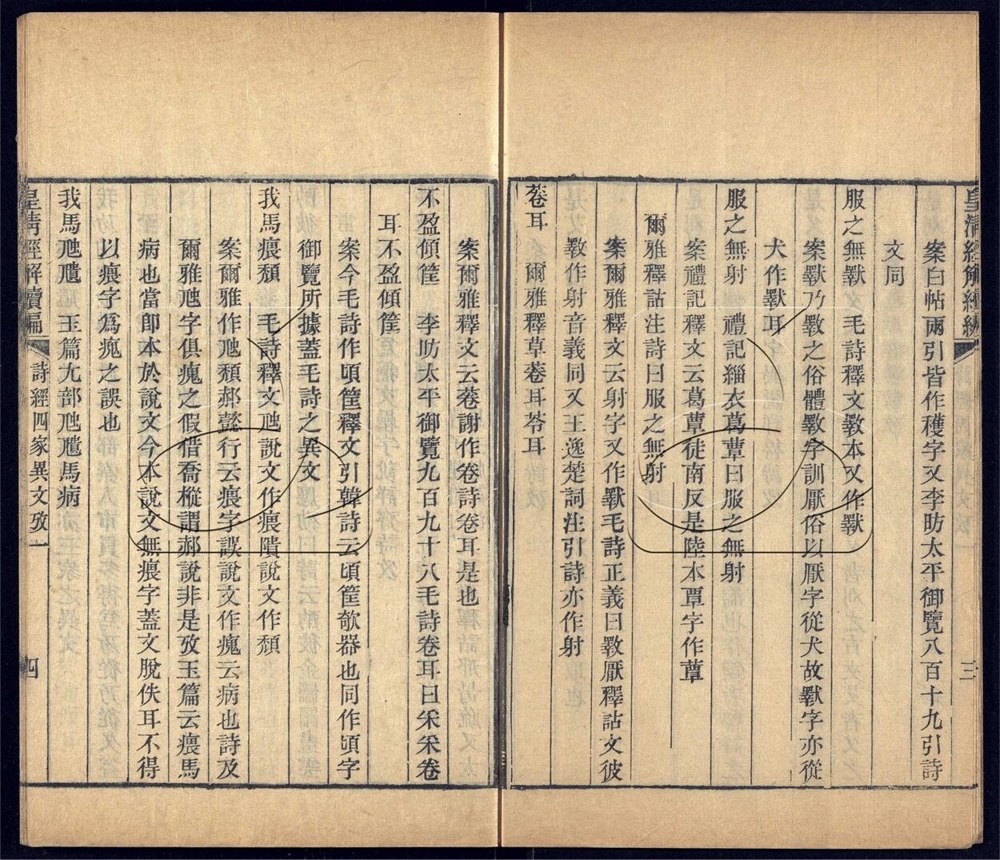 皇清經解續編
三
案白帖兩引皆作穫字又李昉太平御覽八百十九引詩
文同
服之無斁　毛詩釋文斁本又作厭
案斁乃斁之俗體斁字訓厭俗以厭字從犬故斁字亦從
犬作獸耳
服之無射　禮記緇衣葛蕈曰服之無射
案禮記釋文云葛蕈徒南反是陸本覃字作蕈
爾雅釋詁注詩曰服之無射
案爾雅釋文云射字又作斁毛詩正義曰斁厭釋詁文彼
斁作射音義同又王逸楚詞注引詩亦作射
卷耳　爾雅釋草菤耳苓耳
案爾雅釋文云菤謝作卷詩卷耳是也
不盈傾筐　李昉太平御覽九百九十八毛詩卷耳曰采采卷
耳不盈傾筐
案今毛詩作頃筐釋文引韓詩云頃筐欹器也同作頃字
御覽所據蓋毛詩之異文
我馬瘣頹　毛詩釋文虺說文作瘣隤說文作頹
案爾雅作虺頹郝懿行云瘣字誤說文作瘣云病也詩及
爾雅虺字俱瘣之假借喬樅謂郝說非是攷玉篇云瘣馬
病也當卽本於說文今本說文無瘣字蓋文脫佚耳不得
以瘣字爲瘣之誤也
我馬虺尵　玉篇尢部虺尵馬病
皇清經解續編
詩經四家異文攷一
四